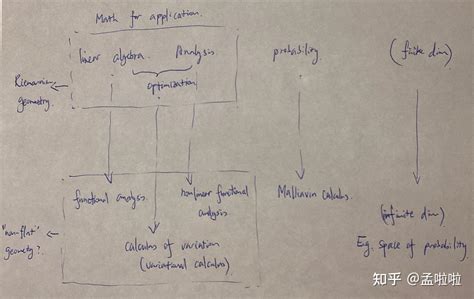 Math for application.
linear algebra. Analysis. probability. (finite dim)
optimization
Riemannian
geometry.
functional analysis. nonlinear functional Malliavin calculus.
analysis
"non-flat"
geometry?
calculus of variation
(variational calculus)
(infinite dim)
Eg. space of probability.
知乎 @孟啦啦